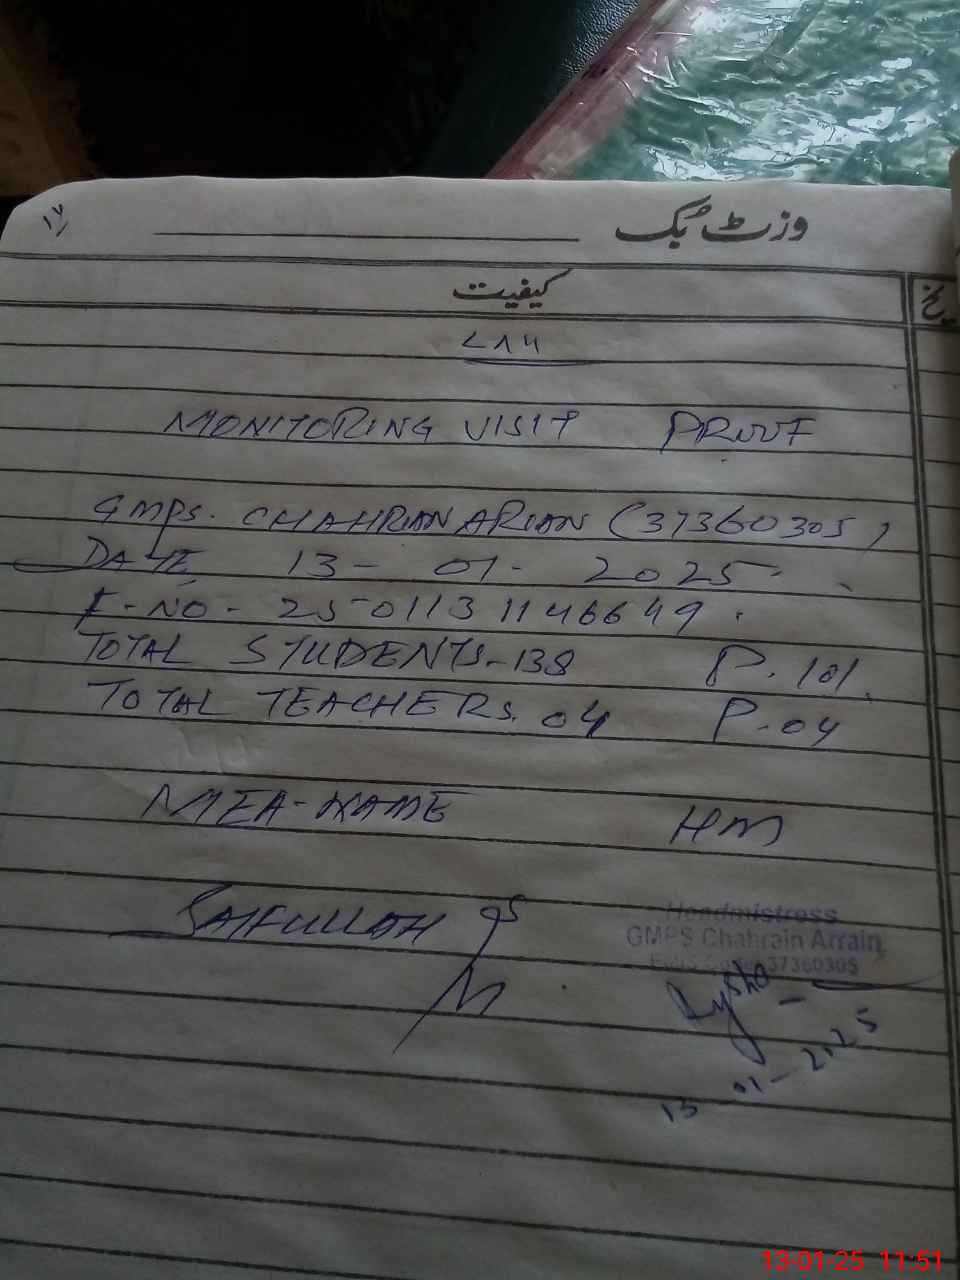 ۱۷
وزٹ بک
کیفیت
تاریخ
۷۸۶
MONITORING VISIT PROOF
GMPS. CHAHRIAN ARIAN (37360305)
DATE 13-01-2025.
F-NO-25011311146649.
TOTAL STUDENTS-138 P.101.
TOTAL TEACHERS.04 P-04
MEA-NAME HM
SAIFULLAH
Headmistress
GMPS Chahrain Arrain
EMIS Code 37360305
Aysha
13-01-2025
13-01-25 11:51